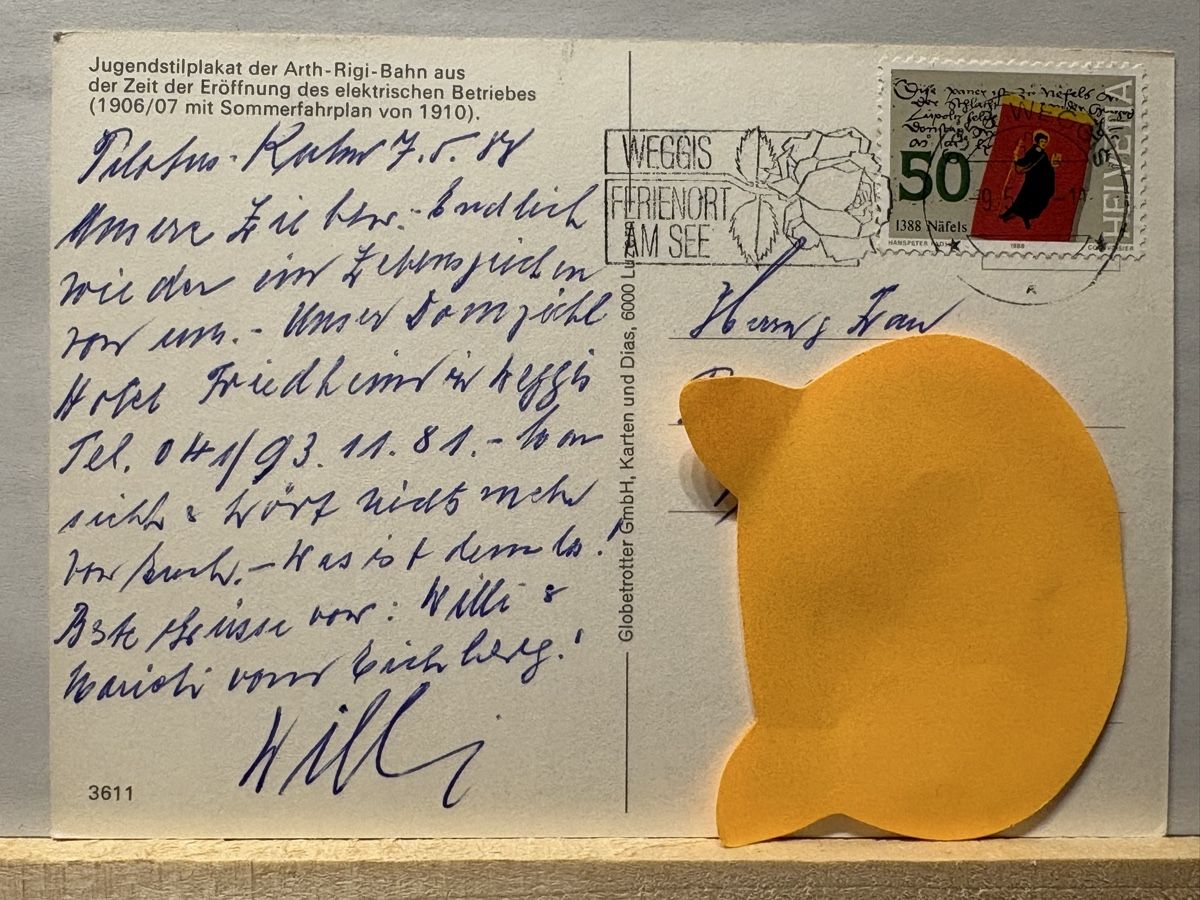 Jugendstilplakat der Arth-Rigi-Bahn aus
der Zeit der Eröffnung des elektrischen Betriebes
(1906/07 mit Sommerfahrplan von 1910).
Pilatus-Kulm 7.5.88
Unsere Lieben.- Endlich
wieder ein Lebenszeichen
von uns.- Unser Domizihl
Hotel Friedheim in Weggis
Tel. 041/93.11.81.- Man
sieht & hört nichts mehr
von Euch.- Was ist denn los!
Beste Grüsse von: Willi &
vom Eichberg!
Willi
3611
Globetrotter GmbH, Karten und Dias, 6000 Luzern
WEGGIS
FERIENORT
AM SEE
HELVETIA
50
1388 Näfels
1988
COURVOISIER
WEGGIS
-9.5
Herrn & Frau